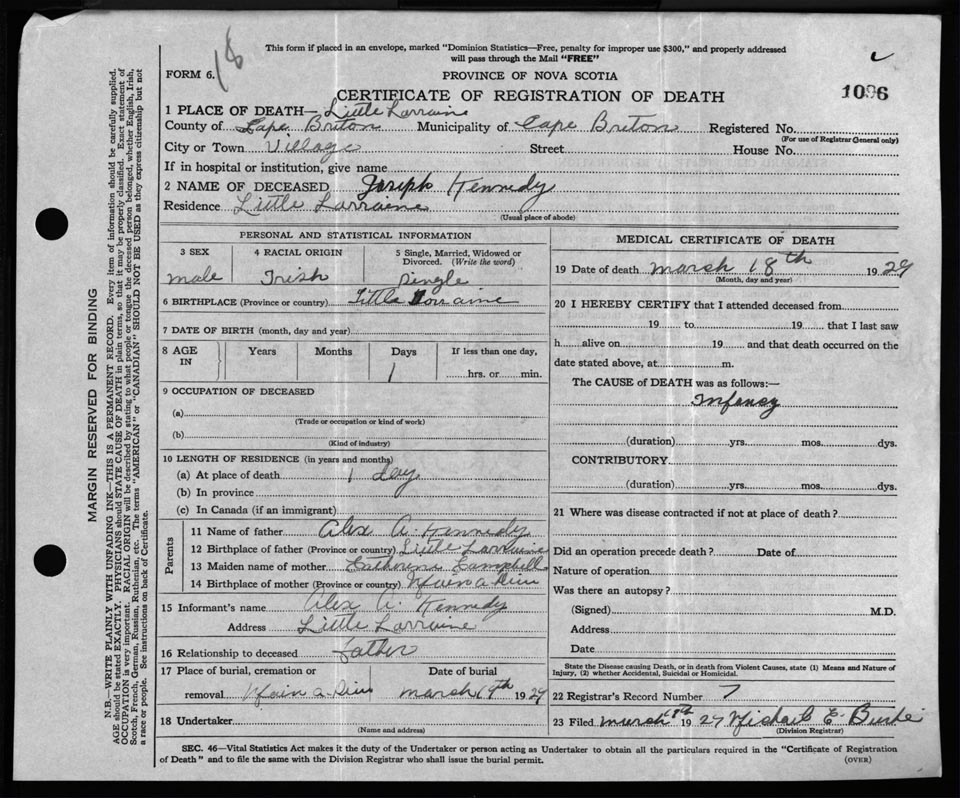 This form if placed in an envelope, marked "Dominion Statistics—Free, penalty for improper use $300," and properly addressed
will pass through the Mail "FREE"
18
FORM 6.
PROVINCE OF NOVA SCOTIA
CERTIFICATE OF REGISTRATION OF DEATH
1096
1 PLACE OF DEATH— Little Lorraine
County of Cape Breton Municipality of Cape Breton Registered No.
(For use of Registrar General only)
City or Town Village Street House No.
If in hospital or institution, give name
2 NAME OF DECEASED Joseph Kennedy
Residence Little Lorraine
(Usual place of abode)
PERSONAL AND STATISTICAL INFORMATION
3 SEX 4 RACIAL ORIGIN 5 Single, Married, Widowed or
Divorced. (Write the word)
male Irish Single
6 BIRTHPLACE (Province or country) Little Lorraine
7 DATE OF BIRTH (month, day and year)
8 AGE IN Years Months Days If less than one day,
1 hrs. or min.
9 OCCUPATION OF DECEASED
(a)
(Trade or occupation or kind of work)
(b)
(Kind of industry)
10 LENGTH OF RESIDENCE (in years and months)
(a) At place of death 1 day
(b) In province
(c) In Canada (if an immigrant)
Parents
11 Name of father Alex A. Kennedy
12 Birthplace of father (Province or country) Little Lorraine
13 Maiden name of mother Catherine Campbell
14 Birthplace of mother (Province or country)
15 Informant's name Alex A. Kennedy
Address Little Lorraine
16 Relationship to deceased father
17 Place of burial, cremation or Date of burial
removal March 19th 1929
18 Undertaker
(Name and address)
MEDICAL CERTIFICATE OF DEATH
19 Date of death March 18th 1929
(Month, day and year)
20 I HEREBY CERTIFY that I attended deceased from
19 to 19 that I last saw
h alive on 19 and that death occurred on the
date stated above, at m.
The CAUSE of DEATH was as follows:—
Infancy
(duration) yrs. mos. dys.
CONTRIBUTORY
(duration) yrs. mos. dys.
21 Where was disease contracted if not at place of death?
Did an operation precede death? Date of
Nature of operation
Was there an autopsy?
(Signed) M.D.
Address
Date
State the Disease causing Death, or in death from Violent Causes, state (1) Means and Nature of
Injury, (2) whether Accidental, Suicidal or Homicidal.
22 Registrar's Record Number 7
23 Filed March 19 Michael E. Burke
(Division Registrar)
SEC. 46—Vital Statistics Act makes it the duty of the Undertaker or person acting as Undertaker to obtain all the particulars required in the "Certificate of Registration
of Death" and to file the same with the Division Registrar who shall issue the burial permit.
(OVER)
MARGIN RESERVED FOR BINDING
N.B.—WRITE PLAINLY WITH UNFADING INK—THIS IS A PERMANENT RECORD. Every item of information should be carefully supplied.
AGE should be stated EXACTLY. PHYSICIANS should STATE CAUSE OF DEATH in plain terms, so that it may be properly classified. Exact statement of
OCCUPATION is very important. RACIAL ORIGIN will be described by stating to what people or tongue the deceased person belonged, whether English, Irish,
Scotch, French, German, Russian, Ruthenian, etc. The terms "AMERICAN" or "CANADIAN" SHOULD NOT BE USED as they express citizenship but not
a race or people. See instructions on back of Certificate.